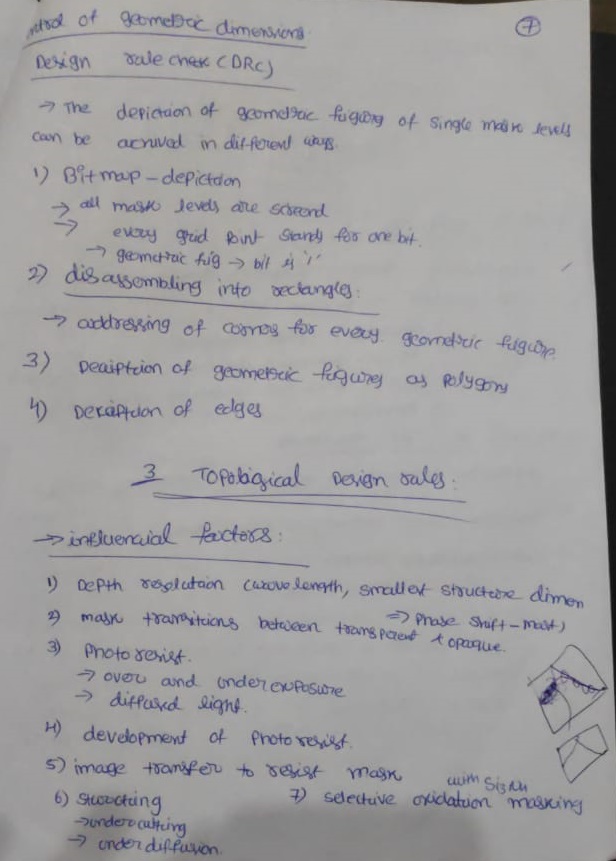 ntrol of geometric dimensions
7
Design rule check (DRC)
→ The depiction of geometric figures of single mask levels
can be achived in different ways.
1) Bitmap - depiction
→ all mask levels are
→ every grid point stands for one bit.
→ geometric fig → bit is '1'
2) disassembling into rectangles:
→ addressing of corners for every geometric figure.
3) Decription of geometric figures as polygons
4) Decription of edges
3 Topological Design rules:
→ influencial factors:
1) Depth resolution (wavelength, smallest structure dimen
⇒ Phase shift-mask)
2) mask transitions between transparent & opaque.
3) Photo resist.
→ over and under exposure
→ diffused light.
4) development of Photo resist.
5) image transfer to resist mask
6)
→ under cutting
→ under diffusion.
7) selective oxidation masking
with Si3N4